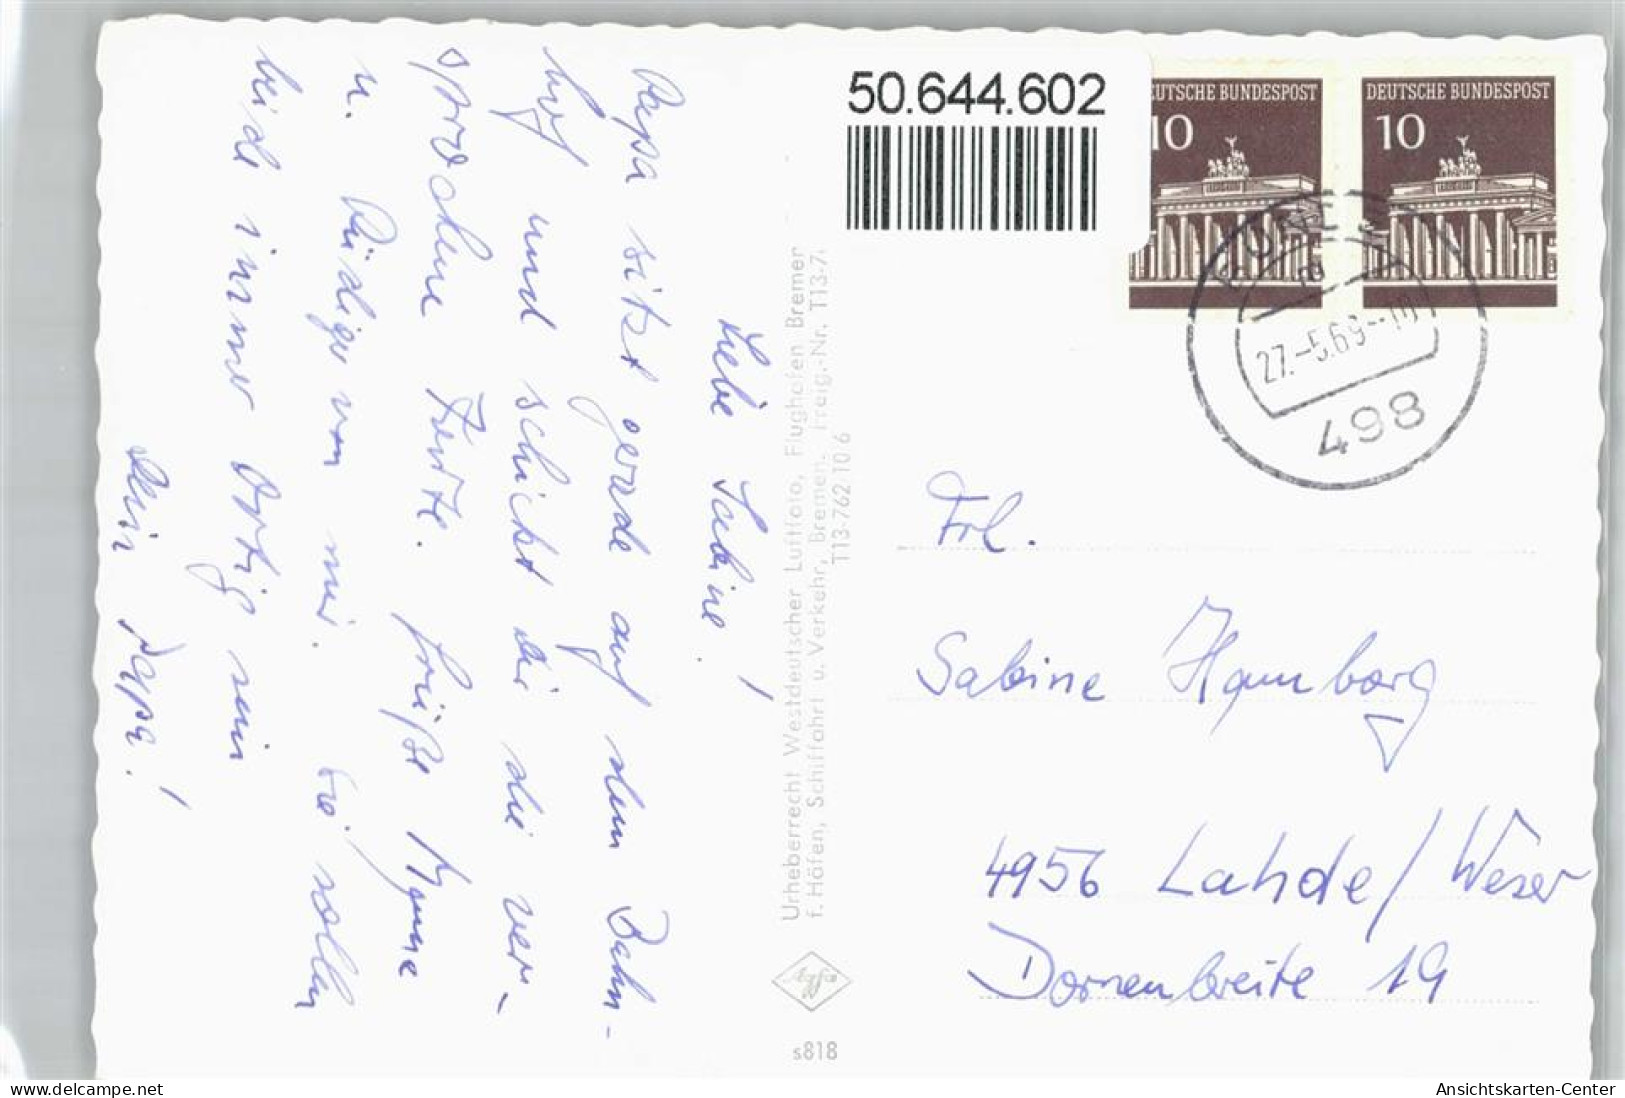 Liebe Sabine!
Papa sitzt gerade auf dem Bahn-
hof und schickt dir die ver-
sprochene Karte. Grüße Mama
u. Rüdiger von mir. Sie sollen
beide immer artig sein
Dein Papa!
Urheberrecht Westdeutscher Luftfoto, Flughafen Bremer
f. Häfen, Schiffahrt u. Verkehr, Bremen. Freig.-Nr. T13-7.
T13-762 10 6
Agfa
s818
50.644.602
DEUTSCHE BUNDESPOST
10
DEUTSCHE BUNDESPOST
10
27.-5.69-
498
Frl.
Sabine Hamborg
4956 Lahde/Weser
Dornenbreite 19
www.delcampe.net
Ansichtskarten-Center